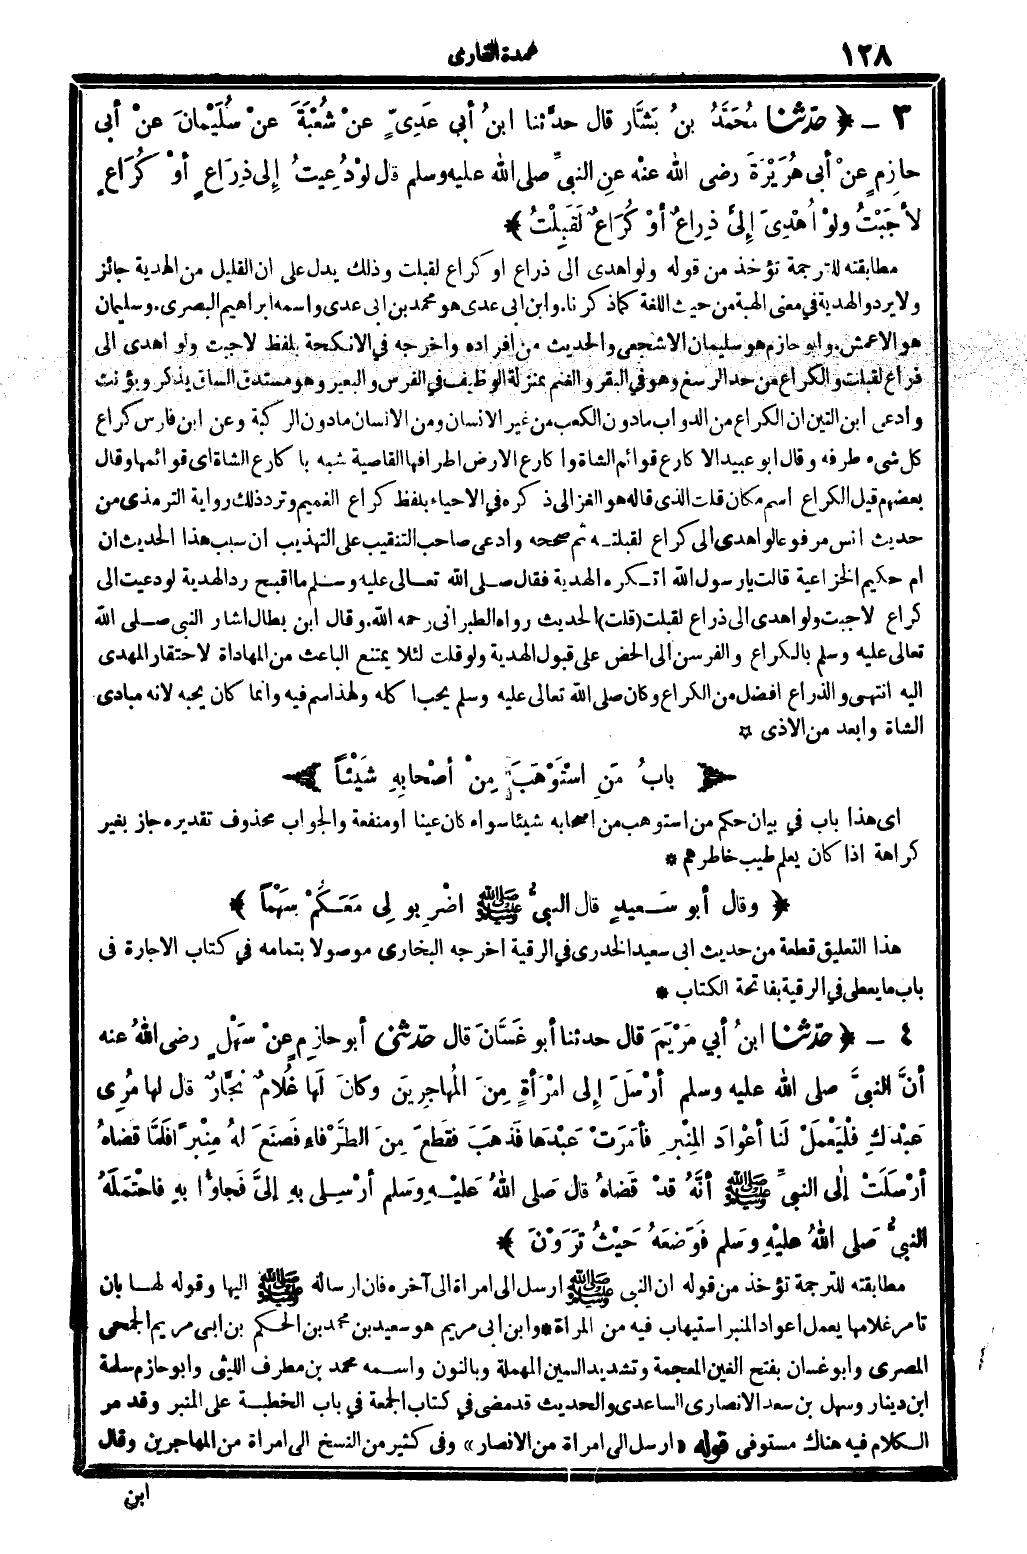 ١٢٨
عمدة القارى
٣ ــ ﴿ حدّثنا مُحَمَّدُ بنُ بَشَّار قال حدَّثنا ابنُ أبي عَدِيّ عنْ شُعْبَةَ عنْ سُلَيْمانَ عنْ أبى
حازِمٍ عنْ أبى هُرَيْرَةَ رضى اللهُ عنْه عنِ النبيِّ صلى الله عليه وسلم قال لوْ دُعِيتُ إلى ذِرَاعٍ أوْ كُرَاعٍ
لأَجَبْتُ ولوْ أُهْدِىَ إلىَّ ذِراعٌ أوْ كُرَاعٌ لَقَبِلْتُ ﴾
مطابقته للترجمة تؤخذ من قوله ولو اهدى الى ذراع او كراع لقبلت وذلك يدل على ان القليل من الهدية جائز
ولا يرد والهدية في معنى الهبة من حيث اللغة كما ذكرنا. وابن ابى عدى هو محمد بن ابى عدى واسمه ابراهيم البصرى. وسليمان
هو الاعمش. وابو حازم هو سليمان الاشجعى والحديث من افراده واخرجه في الانكحة بلفظ لاجبت ولو اهدى الى
ذراع لقبلت والكراع من حد الرسغ وهو في البقر والغنم بمنزلة الوظيف في الفرس والبعير وهو مستدق الساق يذكر ويؤنث
وادعى ابن التين ان الكراع من الدواب مادون الكعب من غير الانسان ومن الانسان مادون الركبة وعن ابن فارس كراع
كل شىء طرفه وقال ابو عبيد الاكارع قوائم الشاة واكارع الارض اطرافها القاصية شبه باكارع الشاة اى قوائمها وقال
بعضهم قيل الكراع اسم مكان قلت الذى قاله هو الغزالى ذكره في الاحياء بلفظ كراع الغميم وترد ذلك رواية الترمذى من
حديث انس مرفوعا لو اهدى الى كراع لقبلته ثم صححه وادعى صاحب التنقيب على التهذيب ان سبب هذا الحديث ان
ام حكيم الخزاعية قالت يارسول الله اتكره الهدية فقال صلى الله تعالى عليه وسلم ما اقبح رد الهدية لو دعيت الى
كراع لاجبت ولو اهدى الى ذراع لقبلت (قلت) الحديث رواه الطبرانى رحمه الله. وقال ابن بطال اشار النبى صلى الله
تعالى عليه وسلم بالكراع والفرسن الى الحض على قبول الهدية ولو قلت لئلا يمتنع الباعث من المهاداة لاحتقار المهدى
اليه انتهى والذراع افضل من الكراع وكان صلى الله تعالى عليه وسلم يحب اكله ولهذا سم فيه وانما كان يحبه لانه مبادى
الشاة وابعد من الاذى ✡
﴿ بابُ مَنِ اسْتَوْهَبَ مِنْ أصْحابِهِ شَيْئاً ﴾
اى هذا باب في بيان حكم من استوهب من اصحابه شيئا سواء كان عينا او منفعة والجواب محذوف تقديره جاز بغير
كراهة اذا كان يعلم طيب خاطرهم *
﴿ وقال أبو سَعيدٍ قال النبيُّ ﷺ اضْرِبو لِى مَعَكُمْ سَهْماً ﴾
هذا التعليق قطعة من حديث ابى سعيد الخدرى في الرقية اخرجه البخارى موصولا بتمامه في كتاب الاجارة فى
باب مايعطى في الرقية بفاتحة الكتاب *
٤ ــ ﴿ حدّثنا ابنُ أبي مَرْيَمَ قال حدثنا أبو غَسَّانَ قال حدّثنى أبو حازِمٍ عنْ سَهْلٍ رضى اللهُ عنه
أنَّ النبيَّ صلى الله عليه وسلم أرْسَلَ إلى امْرَأةٍ مِنَ المُهاجِرِينَ وكانَ لَها غُلامٌ نجَّارٌ قال لها مُرِى
عَبْدَكِ فلْيَعْمَلْ لَنا أعْوادَ المِنْبرِ فأمَرَتْ عَبْدَها فَذَهَبَ فقَطَعَ مِنَ الطَّرْفاءِ فَصَنَعَ لهُ مِنْبراً فلَمَّا قضاهُ
أرْسَلَتْ إلى النبيِّ ﷺ أنَّهُ قدْ قَضاهُ قال صَلى اللهُ عَليْهِ وسَلم أرْسِلِى بهِ إلىَّ فَجاؤُا بهِ فاحْتَمَلَهُ
النبيُّ صَلى اللهُ عليْهِ وسَلم فَوَضَعَهُ حَيْثُ تَرَوْنَ ﴾
مطابقته للترجمة تؤخذ من قوله ان النبى ﷺ ارسل الى امراة الى آخره فان ارساله ﷺ اليها وقوله لها بان
تامر غلامها يعمل اعواد المنبر استيهاب فيه من المراة * وابن ابى مريم هو سعيد بن محمد بن الحكم بن ابى مريم الجمحى
المصرى وابو غسان بفتح الغين المعجمة وتشديد السين المهملة وبالنون واسمه محمد بن مطرف الليثى وابو حازم سلمة
ابن دينار وسهل بن سعد الانصارى الساعدى والحديث قد مضى في كتاب الجمعة في باب الخطبة على المنبر وقد مر
الكلام فيه هناك مستوفى قوله «ارسل الى امراة من الانصار» وفى كثير من النسخ الى امراة من المهاجرين وقال
ابن